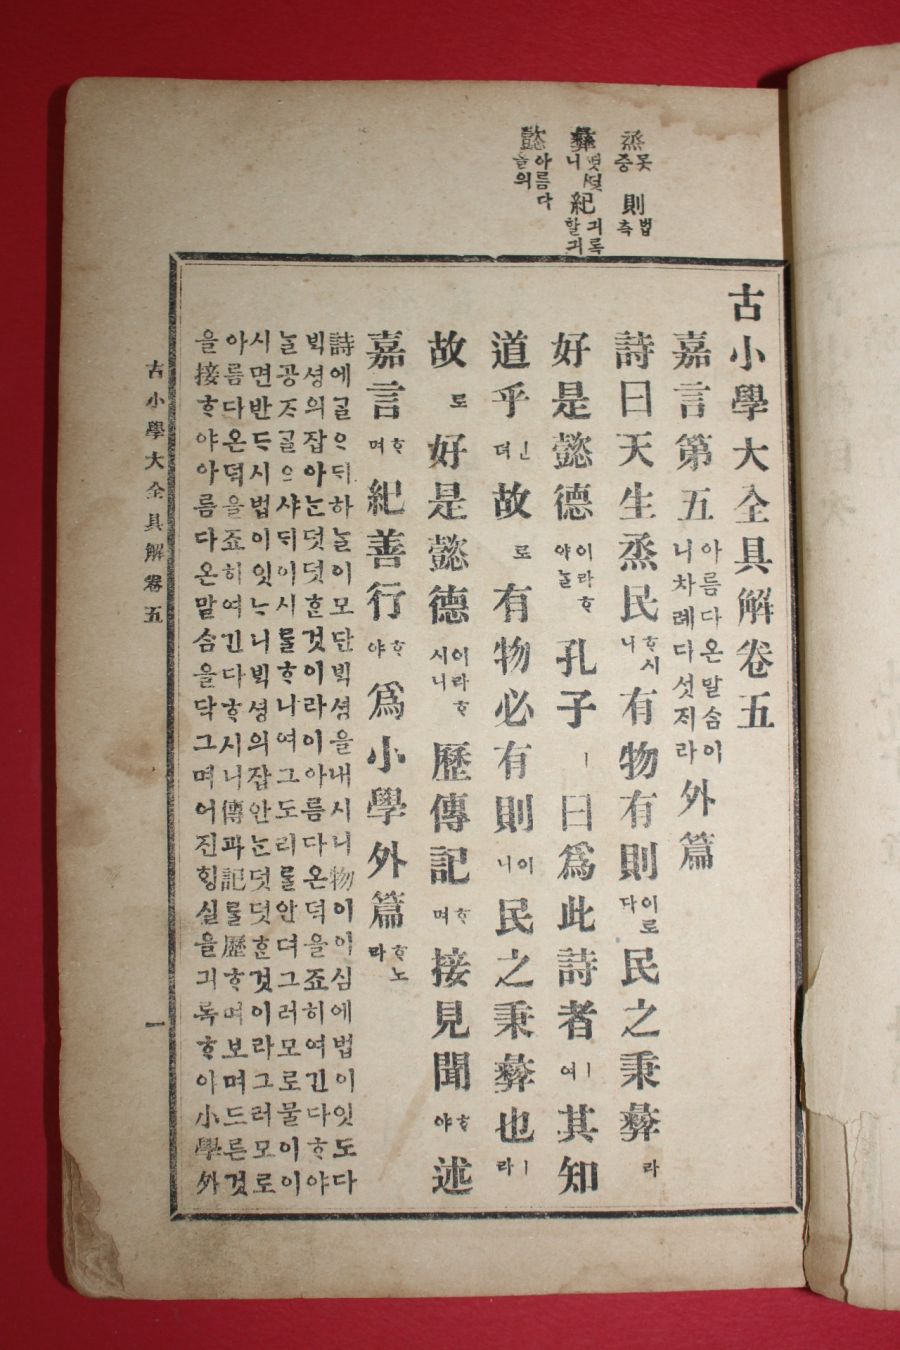 烝못중 則법측
彛떳떳니 紀긔록할긔
懿아름다울의
古小學大全具解卷五
嘉言第五아름다온말솜이니차례다섯저라外篇
詩曰天生烝民ᄒᆞ시니有物有則이로다民之秉彛라
好是懿德이라ᄒᆞ야ᄂᆞᆯ孔子ㅣ曰爲此詩者ㅣ여其知
道乎ᅟᅵᆫ뎌故로有物必有則이니民之秉彛也ㅣ라
故로好是懿德이라ᄒᆞ시니歷傳記ᄒᆞ며接見聞ᄒᆞ야述
嘉言ᄒᆞ며紀善行ᄒᆞ야爲小學外篇ᄒᆞ노라
詩에ᄀᆞᆯᄋᆞᄃᆡ하ᄂᆞᆯ이모단ᄇᆡᆨ셩을내시니物이이심에법이잇도다
ᄇᆡᆨ셩의잡아ᄂᆞᆫ덧덧ᄒᆞᆫ것이라이아름다온덕을죠히여긴다ᄒᆞ야
ᄂᆞᆯ공ᄌᆞᄀᆞᆯᄋᆞ샤ᄃᆡ이시를ᄒᆞ니여그도리를안뎌그러모로물이이
시면반ᄃᆞ시법이잇ᄂᆞ니ᄇᆡᆨ셩의잡안ᄂᆞᆫ덧덧ᄒᆞᆫ것이라그러모로
아름다온덕을죠히여긴다ᄒᆞ시니傳과記를歷ᄒᆞ며보며드른것
을接ᄒᆞ야아름다온말솜을닥그며어진ᄒᆡᆼ실을긔록ᄒᆞ야小學外
古小學大全具解卷五 一